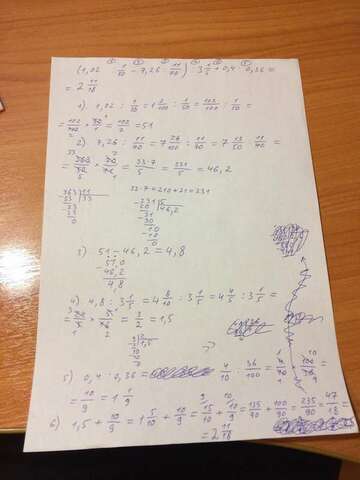 (1,02 : 1/50 − 7,26 : 11/70) : 3 1/5 + 0,4 : 0,36 =
= 2 11/18
1) 1,02 : 1/50 = 1 2/100 : 1/50 = 102/100 : 1/50 =
= 102/100 · 50/1 = 102/2 = 51
2) 7,26 : 11/70 = 7 26/100 : 11/70 = 7 13/50 : 11/70 =
= 363/50 · 70/11 = 33·7/5 = 231/5 = 46,2
363 11
33 33
33
33
0
33·7 = 210 + 21 = 231
231 5
20 46,2
31
30
10
10
0
3) 51 − 46,2 = 4,8
51,0
46,2
4,8
4) 4,8 : 3 1/5 = 4 8/10 : 3 1/5 = 4 4/5 : 3 1/5 =
= 24/5 · 5/16 = 3/2 = 1,5
3 2
2 1,5
10
10
5) 0,4 : 0,36 = 4/10 : 36/100 = 4/10 · 100/36 =
= 10/9 = 1 1/9
6) 1,5 + 10/9 = 1 5/10 + 10/9 = 15/10 + 10/9 = 135/90 + 100/90 = 235/90 = 47/18 =
= 2 11/18